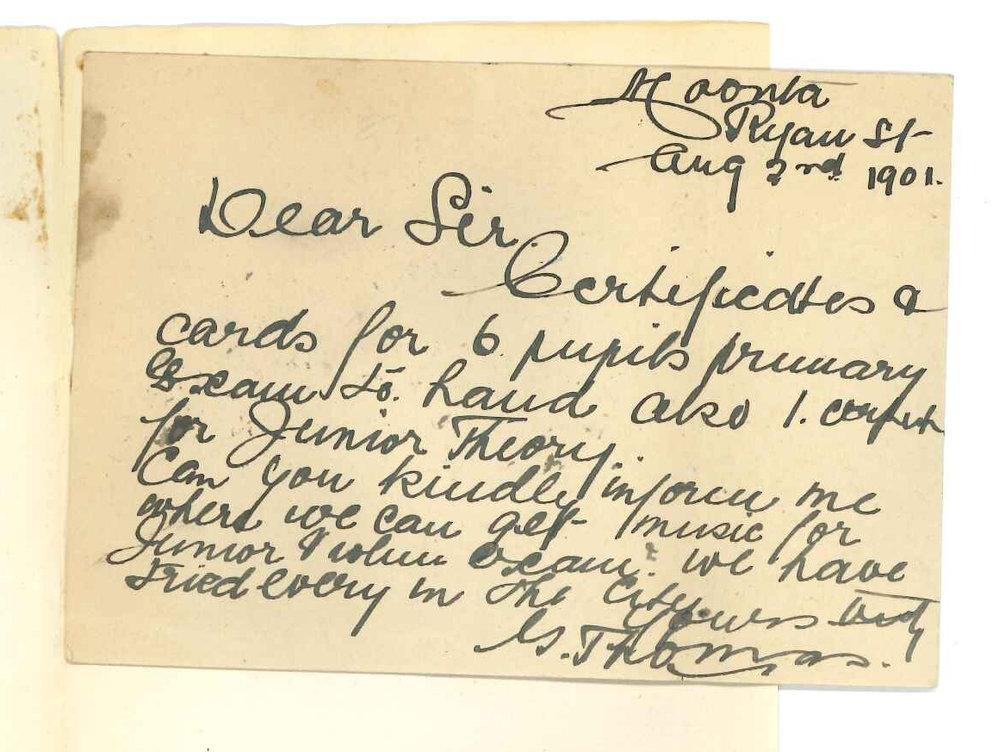 Moonta
Ryan St
Aug 2nd 1901.
Dear Sir.
Certificates &
cards for 6 pupils primary
Exam to. hand also 1.
for Junior Theory.
Can you kindly inform me
where we can get music for
Junior Violin exam. we have
tried every in the City
Yours truly
G. Thomas.